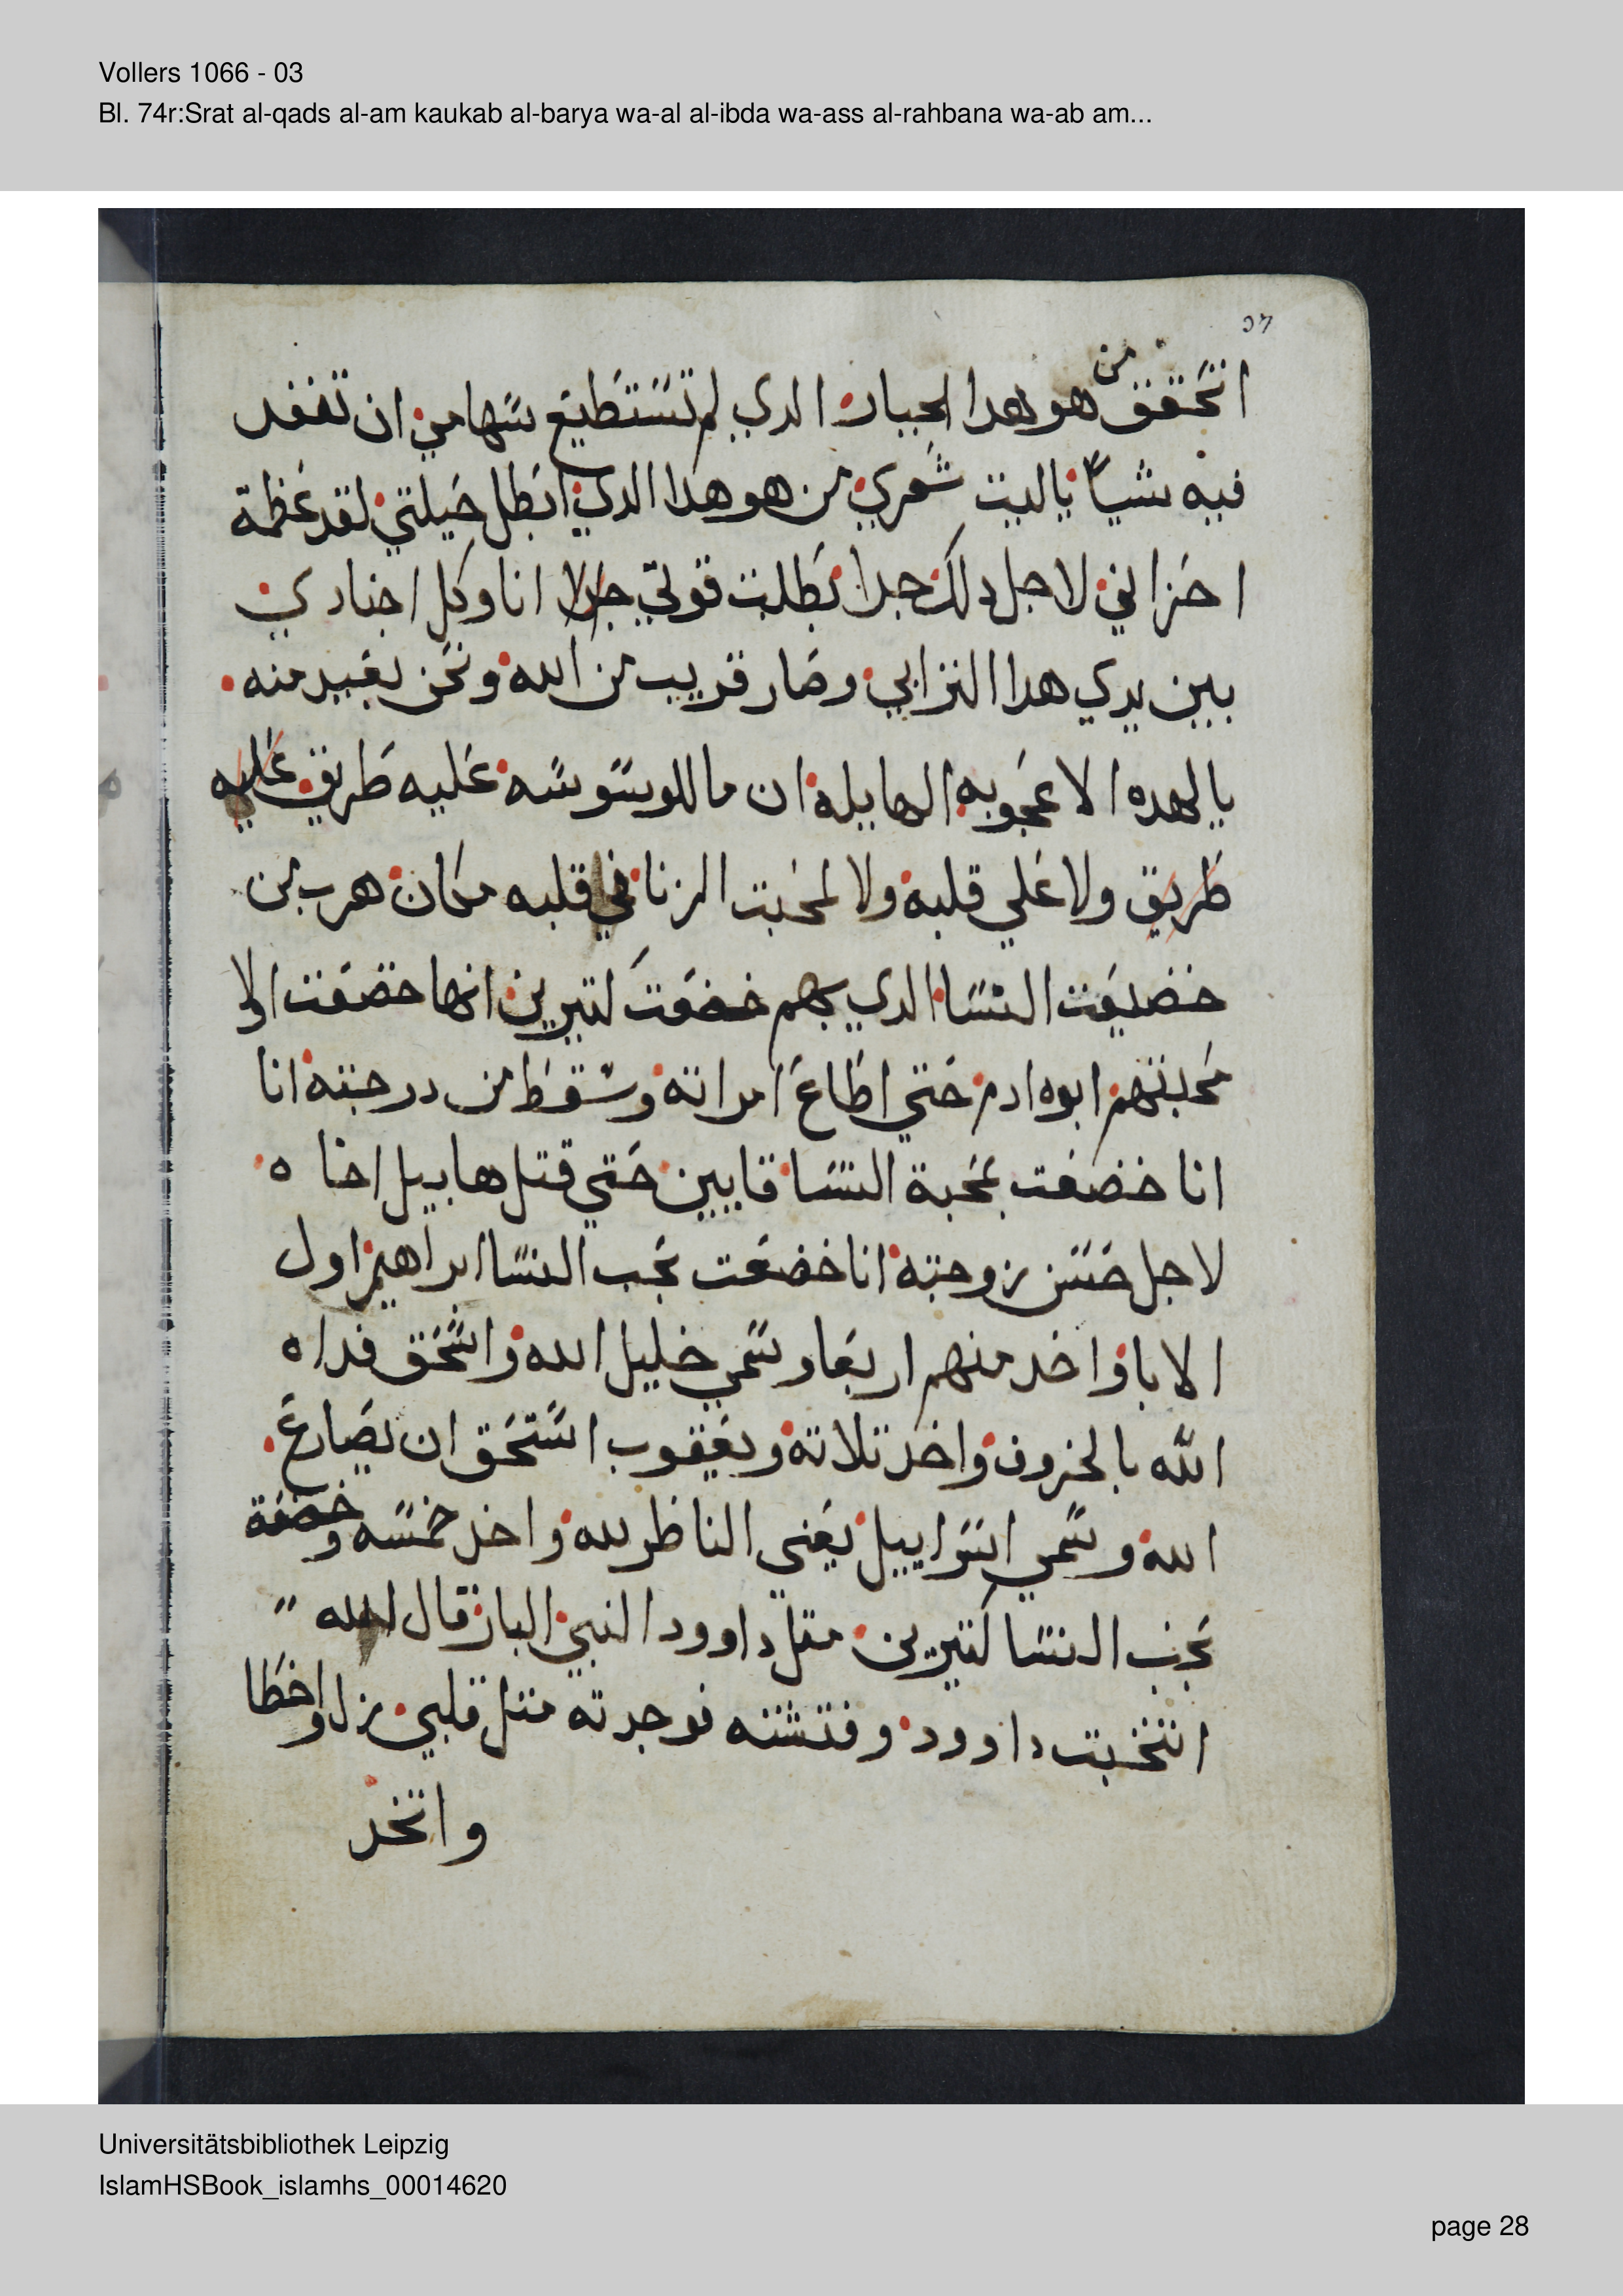 Vollers 1066 - 03
Bl. 74r:Srat al-qads al-am kaukab al-barya wa-al al-ibda wa-ass al-rahbana wa-ab am...
اتحقق من هو هدا الجبار الدي لم تستطيع سهامي ان تنفد
فيه شياً ياليت شعري من هو هدا الدي ابطل حيلتي لقد عظمة
احزاني لاجل دلك جدا بطلت قوتي جدا انا وكل اجنادي
بين يدي هدا الترابي وصار قريب من الله ونحن بعيد منه
يالهده الاعجوبه الهايله ان ما للوسوسه عليه طريق عليه
طريق ولا علي قلبه ولا لمحبت الزنا في قلبه مكان هرب من
خضيعت النسا الدي بهم خضعت لتيرين انها خضعت اولا
محبتهم ابوه ادم حتي اطاع امراته وسقط من درجته انا
انا خضعت بمحبة النسا قايين حتي قتل هابيل اخاه
لاجل حسن زوجته انا خضعت بحب النسا ابراهيم اول
الابا واخد منهم اربعا وسمي خليل الله واسحق فداه
الله بالخروف واخد تلاته ويعقوب استحق ان يصارع
الله وسمي اسراييل يعني الناظر لله واخد خمسه وخضعة
بحب النسا لتيرين متل داوود النبي البار قال الله
انتخبت داوود وفتشته فوجدته متل قلبي زل واخطا
واتخد
Universitätsbibliothek Leipzig
IslamHSBook_islamhs_00014620
page 28